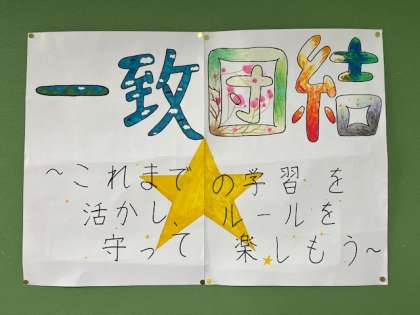 一致団結
～これまでの学習を
活かし、ルールを
守って楽しもう～